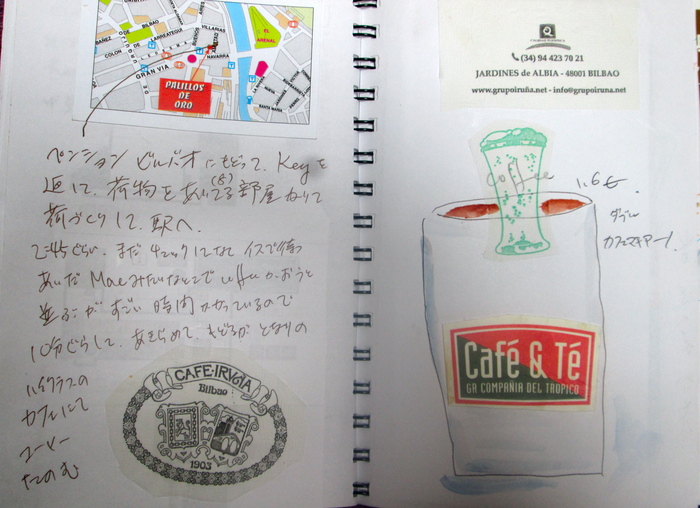 BILBAO
COLON
DE
LARREATEGUI
VILLARIAS
NAVARRA
GRAN VIA
EL
ARENAL
SANTA MARIA
PALILLOS
DE
ORO
ペンション ビルバオ にもどって、Keyを
返して、荷物をあいてる部屋
(8)
荷づくりして、駅へ
2:45ぐらい、まだ チェックしてなく イスで待つ
あいだ Macみたいなとこで coffeeかおうと
並ぶが すごい 時間かかっているので
10分ぐらいして、あきらめて、もどるが となりの
ハイクラスの
カフェにて
コーヒー
たのむ
CAFE-IRUÑA
Bilbao
1903
(34) 94 423 70 21
JARDINES de ALBIA - 48001 BILBAO
www.grupoiruña.net - info@grupoiruna.net
coffee
1.6€.
ダブル
カフェマキアート
Café & Té
GA COMPAÑIA DEL TROPICO